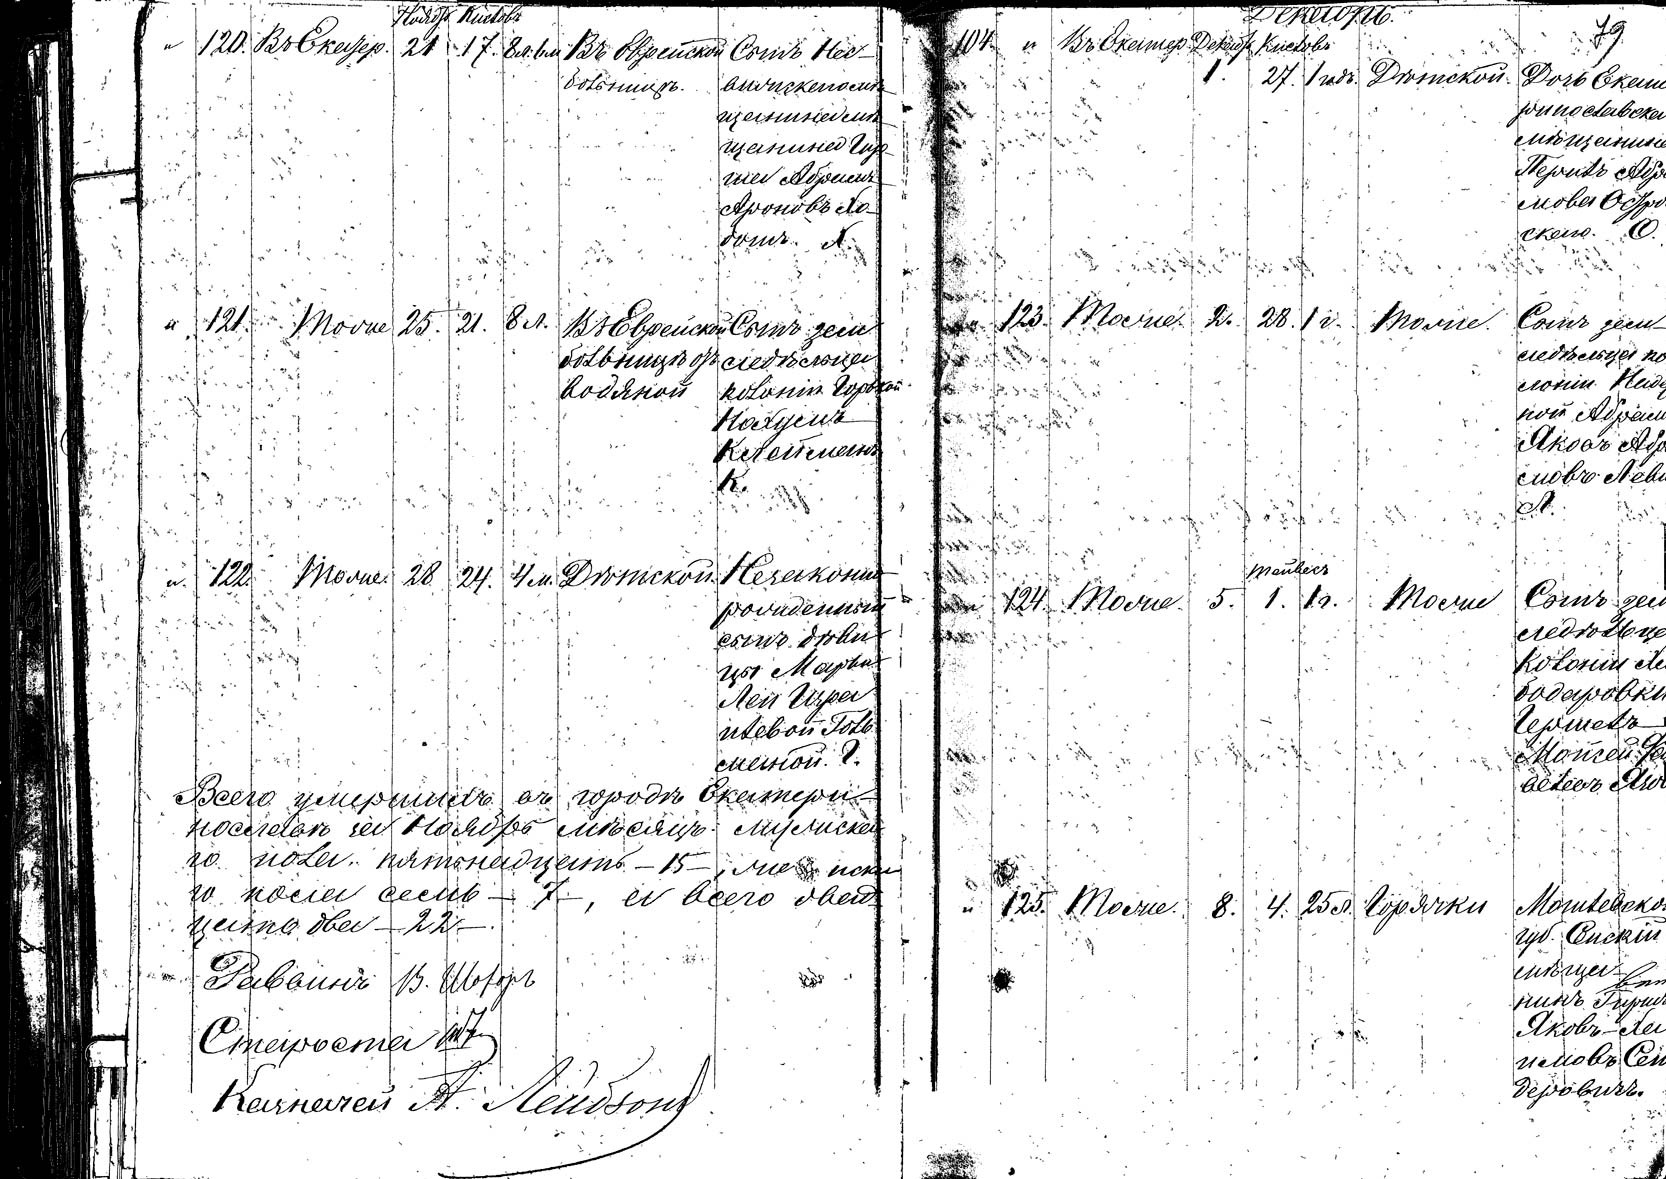 Ноябр Кислевъ
120. Въ Екатер. 21 17. 8 л. 6 м Въ Еврейской Сынъ Нес-
больницѣ. вижскаго мѣ
щанина мѣ
щанина Гер
ша Абрамъ
Ароновъ Ло
ботъ. Л.
121. Тоже 25. 21. 8 л. Въ Еврейской Сынъ земле
больницѣ отъ ледѣльца
водяной колоніи Горькой
Нахумъ
Клейманъ
К.
122. Тоже. 28 24. 4 м. Дѣтской Незаконно
рожденный
сынъ дѣви
цы Марьи
Леи Изра
илевой Голь
маной. Г.
Всего умершихъ въ городѣ Екатери-
нославѣ за Ноябрь мѣсяцъ мужска
го пола пятнадцать - 15 -, женска
го пола семь - 7 -, а всего двад
цать два - 22 -.
Раввинъ В. Шоръ
Староста
Казначей А. Лейбзонъ
79
Декабрь.
104. Въ Екатер. Декабр Кислевъ
1. 27. 1 годъ. Дѣтской. Дочь Екате
ринославска
мѣщанина
Перлъ Абра
мова Остро
скаго. О.
123. Тоже. 2. 28. 1 г. Тоже. Сынъ земле-
ледѣльца ко
лоніи Наде
ной Абрам
Яковъ Абра
мовъ Леви
Л.
Тейвесъ
124. Тоже. 5. 1. 1 г. Тоже Сынъ земле
ледѣльца
Колоніи
бодаровки
Гершель-
Мойсей
125. Тоже. 8. 4. 25 л. Горячки Могилевской
губ. Сенскій
мѣща-
нинъ Гирш
Яковъ-Ха
имовъ Сен
деровичъ.